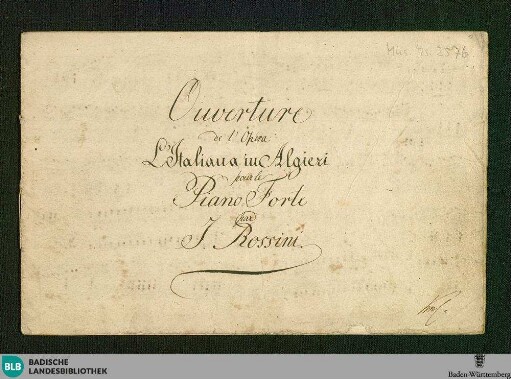 Mus. Hs. 2576
Ouverture
de l'Opera
L'Italiana in Algieri
pour le
Piano Forte
par
J. Rossini
BLB
BADISCHE
LANDESBIBLIOTHEK
Baden-Württemberg